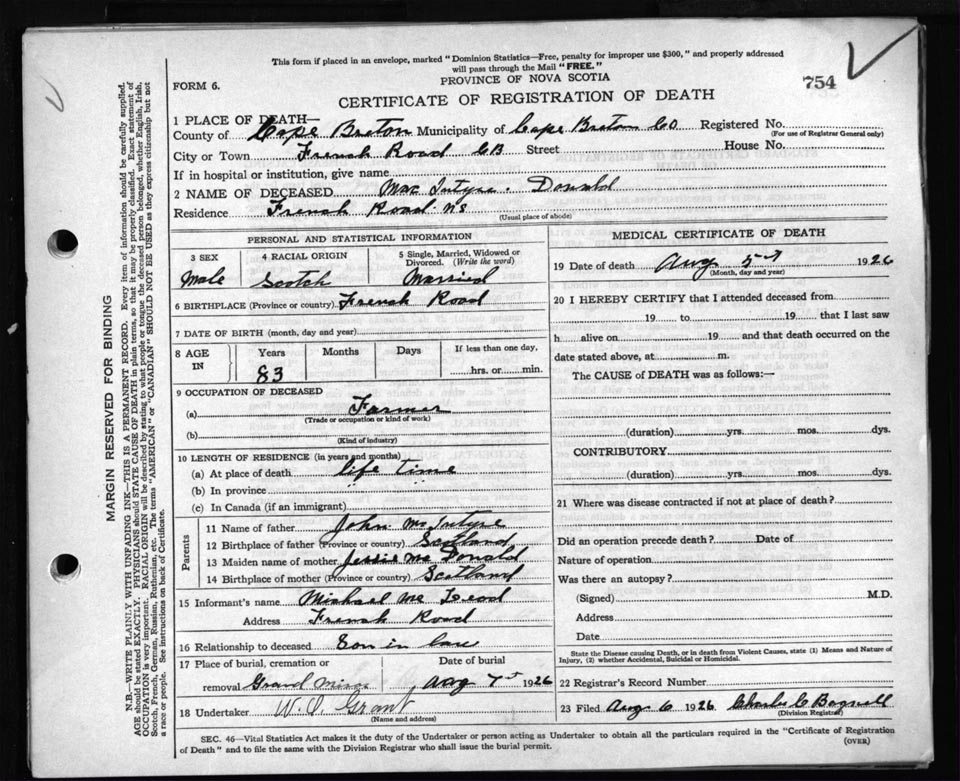 This form if placed in an envelope, marked "Dominion Statistics—Free, penalty for improper use $300," and properly addressed
will pass through the Mail "FREE."
PROVINCE OF NOVA SCOTIA
754
FORM 6.
CERTIFICATE OF REGISTRATION OF DEATH
1 PLACE OF DEATH—
County of Cape Breton Municipality of Cape Breton Co Registered No.
(For use of Registrar General only)
City or Town French Road CB Street House No.
If in hospital or institution, give name
2 NAME OF DECEASED Mac Intyre. Donald
Residence French Road NS
(Usual place of abode)
PERSONAL AND STATISTICAL INFORMATION
3 SEX 4 RACIAL ORIGIN 5 Single, Married, Widowed or
Divorced. (Write the word)
Male Scotch Married
6 BIRTHPLACE (Province or country) French Road
7 DATE OF BIRTH (month, day and year)
8 AGE IN Years Months Days If less than one day,
83 hrs. or min.
9 OCCUPATION OF DECEASED
(a) Farmer
(Trade or occupation or kind of work)
(b)
(Kind of industry)
10 LENGTH OF RESIDENCE (in years and months)
(a) At place of death life time
(b) In province " "
(c) In Canada (if an immigrant)
Parents
11 Name of father John McIntyre
12 Birthplace of father (Province or country) Scotland
13 Maiden name of mother Jessie Mc Donald
14 Birthplace of mother (Province or country) Scotland
15 Informant's name Michael Mc Leod
Address French Road
16 Relationship to deceased Son in law
17 Place of burial, cremation or Date of burial
removal Grand Mira Aug 7 1926
18 Undertaker Grant
(Name and address)
MEDICAL CERTIFICATE OF DEATH
19 Date of death Aug 5 1926
(Month, day and year)
20 I HEREBY CERTIFY that I attended deceased from
19 to 19 that I last saw
h alive on 19 and that death occurred on the
date stated above, at m.
The CAUSE of DEATH was as follows:—
(duration) yrs. mos. dys.
CONTRIBUTORY
(duration) yrs. mos. dys.
21 Where was disease contracted if not at place of death?
Did an operation precede death? Date of
Nature of operation
Was there an autopsy?
(Signed) M.D.
Address
Date
State the Disease causing Death, or in death from Violent Causes, state (1) Means and Nature of
Injury, (2) whether Accidental, Suicidal or Homicidal.
22 Registrar's Record Number
23 Filed Aug 6 1926 Charles C Bagnell
(Division Registrar)
SEC. 46—Vital Statistics Act makes it the duty of the Undertaker or person acting as Undertaker to obtain all the particulars required in the "Certificate of Registration
of Death" and to file the same with the Division Registrar who shall issue the burial permit.
(OVER)
MARGIN RESERVED FOR BINDING
N.B.—WRITE PLAINLY WITH UNFADING INK—THIS IS A PERMANENT RECORD. Every item of information should be carefully supplied.
AGE should be stated EXACTLY. PHYSICIANS should STATE CAUSE OF DEATH in plain terms, so that it may be properly classified. Exact statement of
OCCUPATION is very important. RACIAL ORIGIN will be described by stating to what people or tongue the deceased person belonged, whether English, Irish,
Scotch, French, German, Russian, Ruthenian, etc. The terms "AMERICAN" or "CANADIAN" SHOULD NOT BE USED as they express citizenship but not
a race or people. See instructions on back of Certificate.